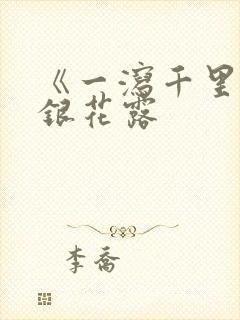 《一瀉千里
銀花露
李喬